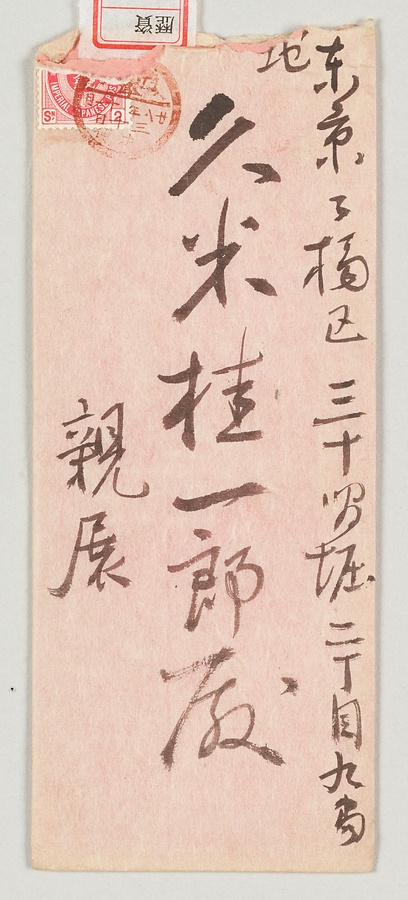 東京々橋区三十間堀二丁目九番
地
久米桂一郎殿
親展
歴資
IMPERIAL JAPANESE
2 Sn
廿八年